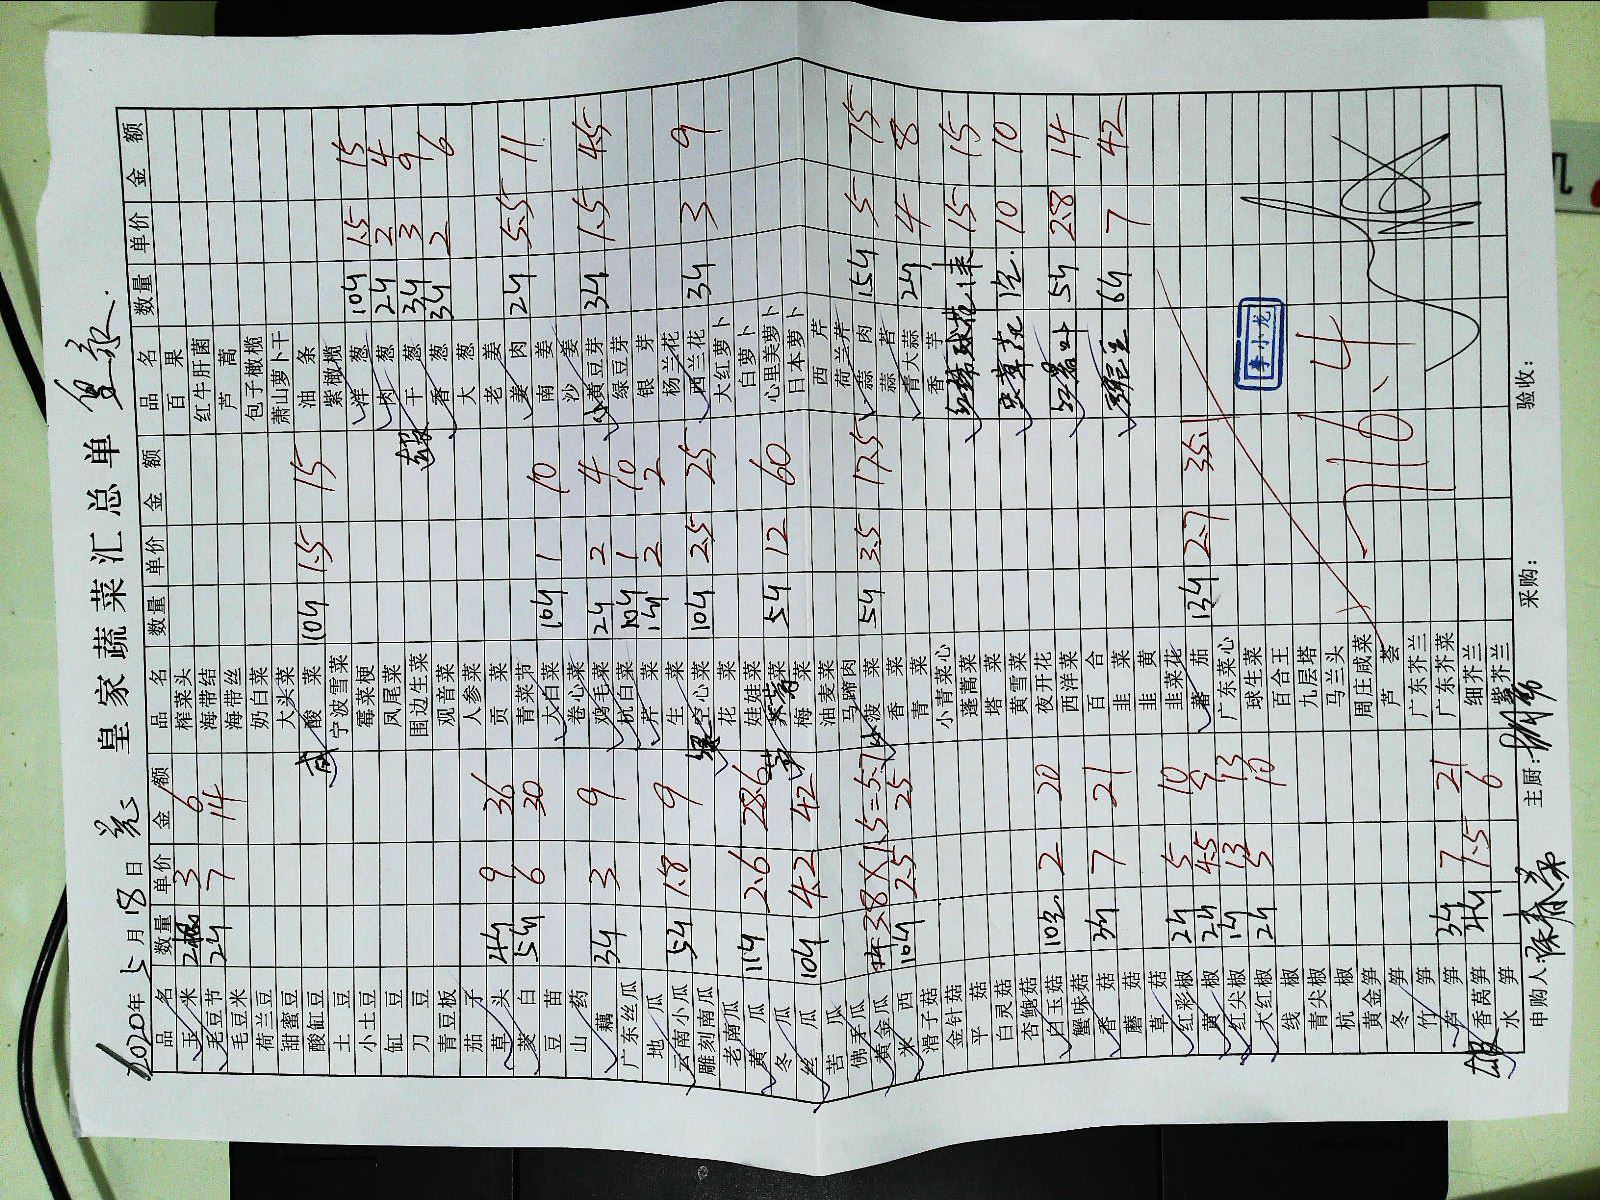 皇家蔬菜汇总单
2020年5月18日
品名 数量 单价 金额 品名 数量 单价 金额 品名 数量 单价 金额
玉米 3 6 榨菜头 百果
毛豆节 2斤 7 14 海带结 红牛肝菌
毛豆米 海带丝 芦蒿
荷兰豆 奶白菜 包子橄榄
甜蜜豆 大头菜 萧山萝卜干
酸缸豆 咸酸菜 10斤 1.5 15 油条
土豆 宁波雪菜 紫橄榄
小土豆 霉菜梗 洋葱 10斤 1.5 15
缸豆 凤尾菜 肉葱 2斤 2 4
刀豆 围边生菜 干葱 3斤 3 9
青豆板 观音菜 香葱 3斤 2 6
茄子 人参菜 大葱
草头 4斤 9 36 贡菜 老姜
茭白 5斤 6 30 青菜节 姜肉 2斤 5.5 11
豆苗 大白菜 10斤 1 10 南姜
山药 卷心菜 沙姜
藕 3斤 3 9 鸡毛菜 2斤 2 4 黄豆芽 3斤 1.5 4.5
广东丝瓜 杭白菜 10斤 1 10 绿豆芽
地瓜 芹菜 1斤 2 2 银芽
云南小瓜 5斤 1.8 9 生菜 杨兰花
雕刻南瓜 空心菜 10斤 2.5 25 西兰花 3斤 3 9
老南瓜 花菜 大红萝卜
黄瓜 11斤 2.6 28.6 娃娃菜 白萝卜
冬瓜 5斤 12 60 心里美萝卜
丝瓜 10斤 4.2 42 梅菜 日本萝卜
苦瓜 油麦菜 西芹
佛手瓜 马蹄肉 荷兰芹
黄金瓜 3.8×1.5=5.7 菠菜 5斤 3.5 17.5 蒜肉 15斤 5 75
米西 10斤 2.5 25 香菜 蒜苔
滑子菇 青菜 青大蒜 2斤 4 8
金针菇 小青菜心 香芋
平菇 蓬蒿菜 15 15
白灵菇 塔菜
杏鲍菇 黄雪菜 虫草花 1包 10 10
白玉菇 10包 2 20 夜开花
蟹味菇 西洋菜 5斤 2.8 14
香菇 3斤 7 21 百合
蘑菇 韭菜 6斤 7 42
草菇 韭黄
红彩椒 2斤 5 10 韭菜花
黄椒 2斤 4.5 9 番茄 13斤 2.7 35.1
红尖椒 1斤 13 13 广东菜心
大红椒 2斤 5 10 球生菜
线椒 百合王
青尖椒 九层塔
杭椒 马兰头
黄金笋 周庄咸菜
冬笋 芦荟
竹笋 广东芥兰
芦笋 3斤 7 21 广东芥菜
香莴笋 4斤 1.5 6 细芥兰
水笋 紫芥兰
716.4
李小龙
申购人: 主厨: 采购: 验收: